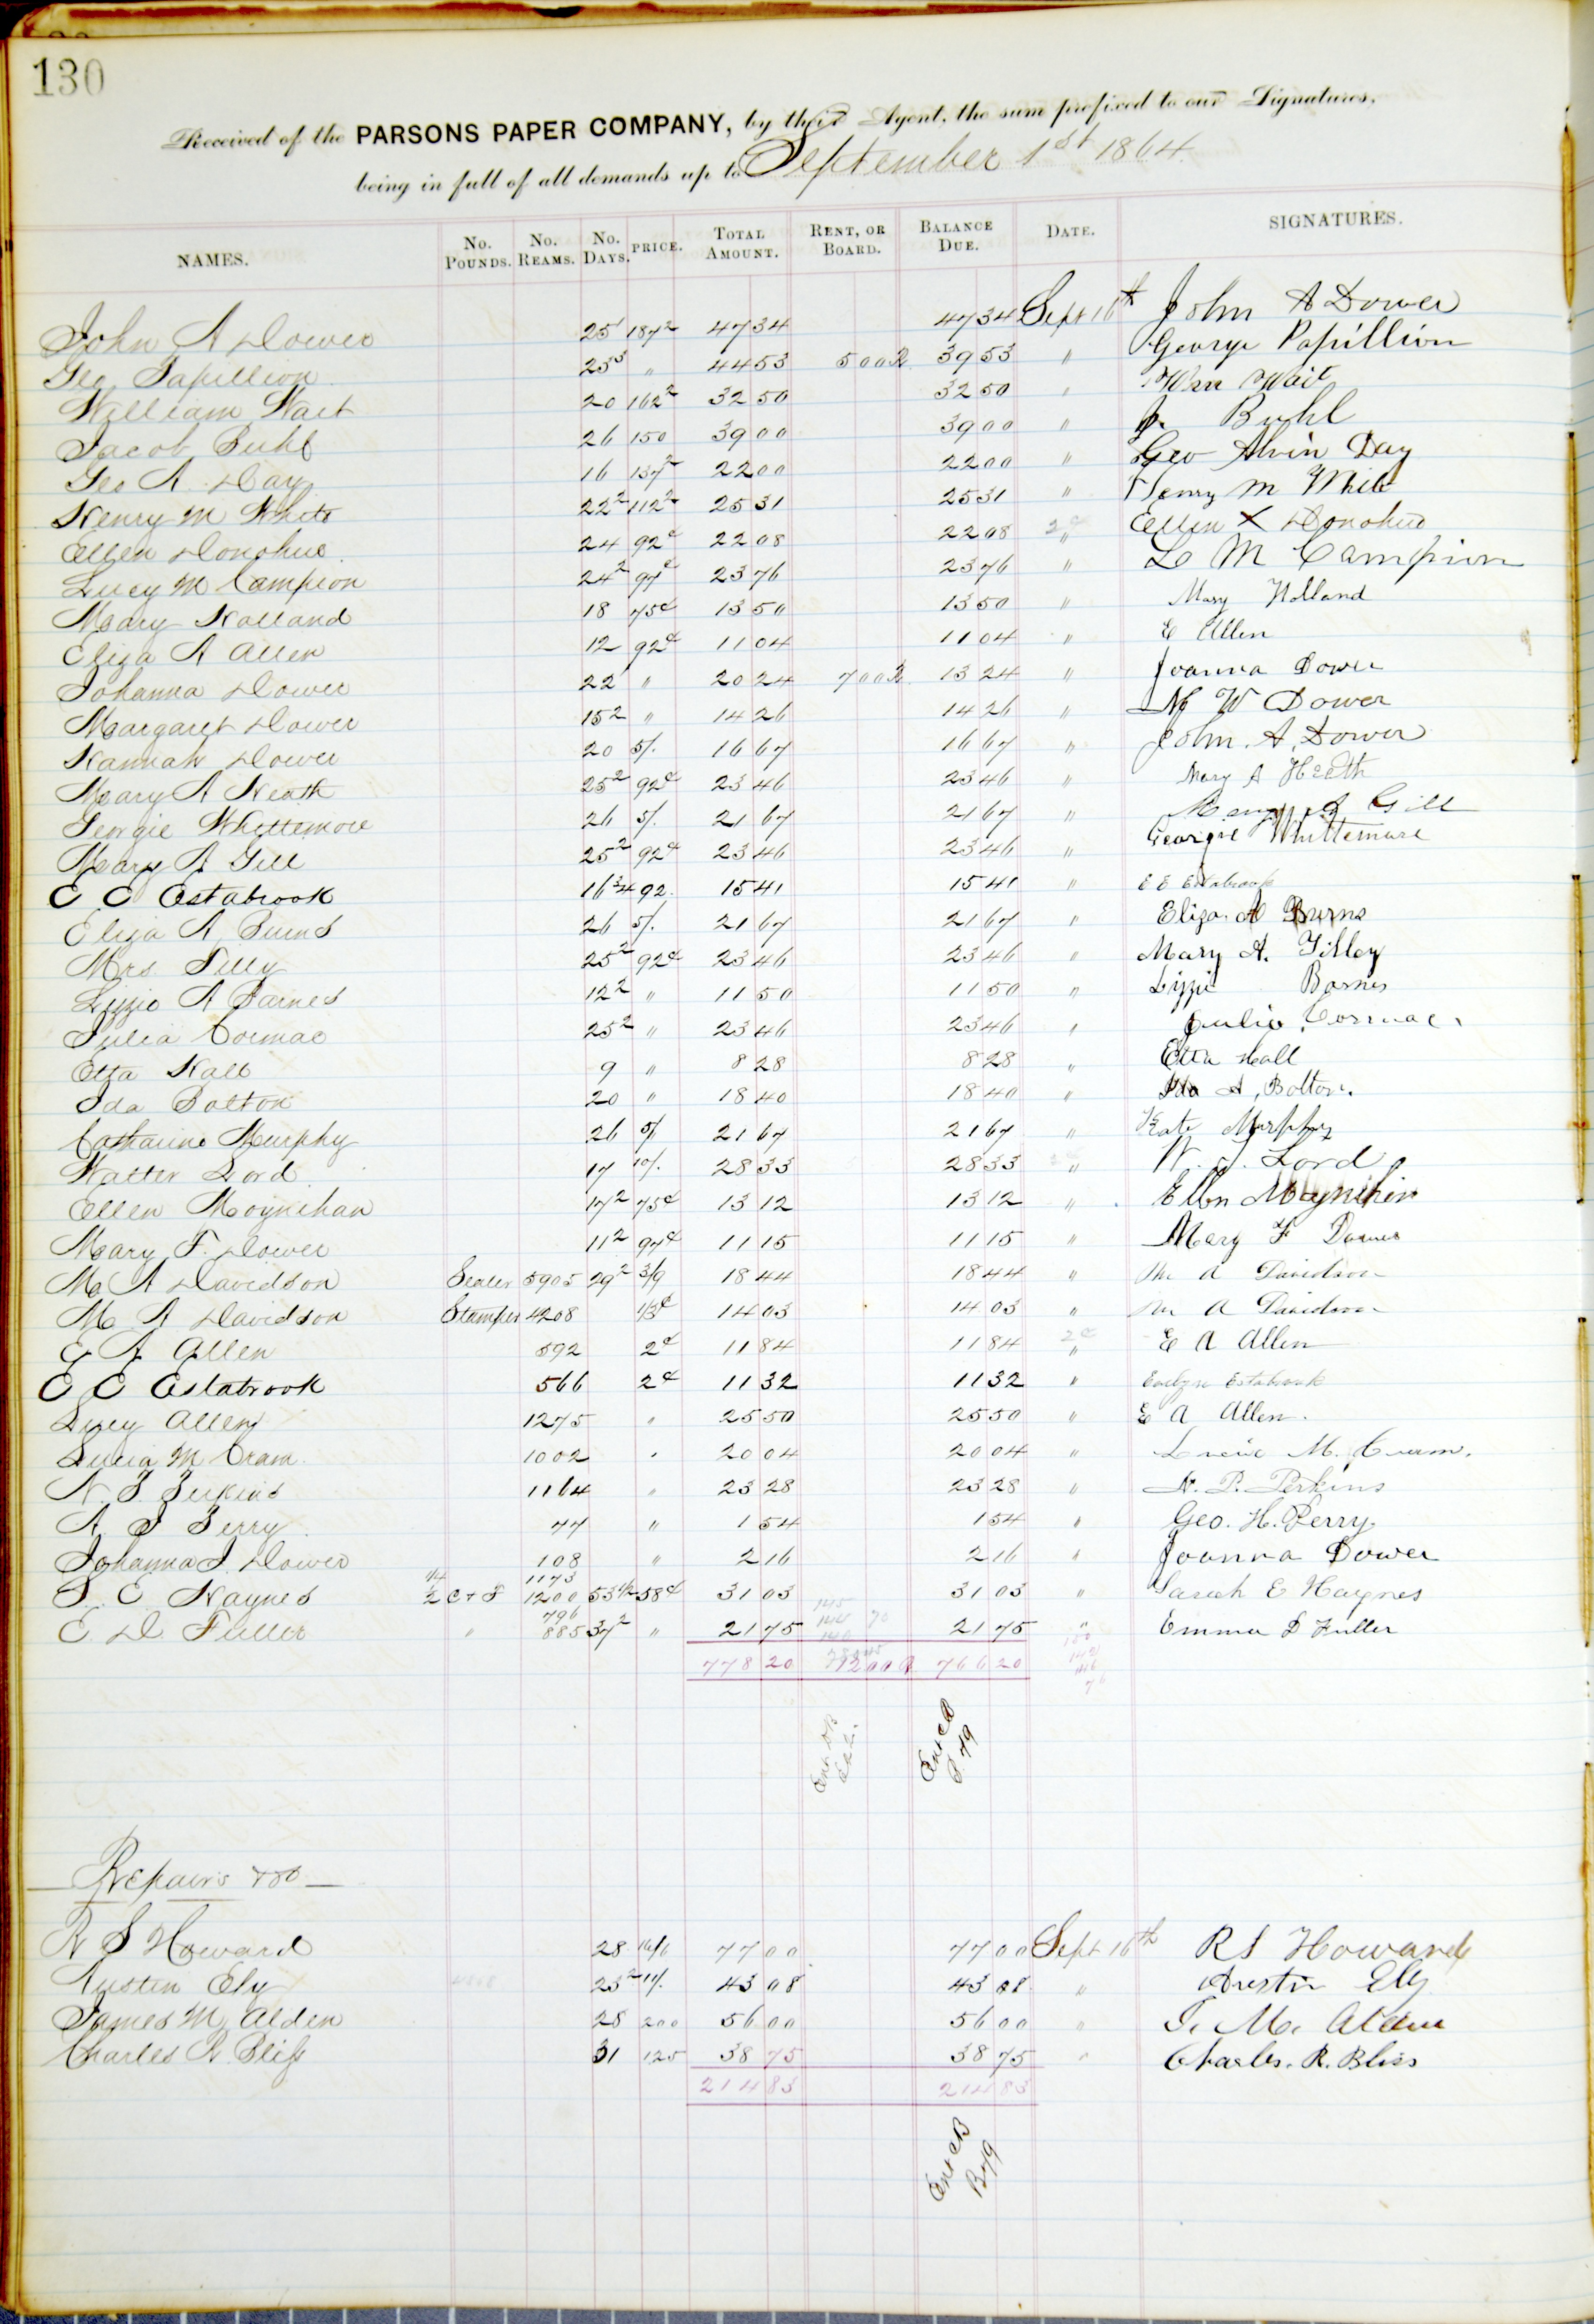 130
Received of the PARSONS PAPER COMPANY, by their Agent, the sum prefixed to our Signatures,
being in full of all demands up to September 1st 1864.
NAMES. No. Pounds. No. Reams. No. Days. PRICE. Total Amount. Rent, or Board. Balance Due. Date. SIGNATURES.
John A Dower 25¹ 187² 47 34 47 34 Sept 16th John A Dower
Geo Papillion 23³ " 44 53 5 00 R 39 53 " George Papillion
William Wait 20 162² 32 50 32 50 " Wm Wait
Jacob Buhl 26 150 39 00 39 00 " J. Buhl
Geo A Day 16 137² 22 00 22 00 " Geo Alvin Day
Henry M White 22² 112² 25 31 25 31 " Henry M White
Ellen Donohue 24 92¢ 22 08 22 08 " Ellen X Donohue
Lucy M Campion 24² 97¢ 23 76 23 76 " L M Campion
Mary Holland 18 75¢ 13 50 13 50 " Mary Holland
Eliza A Allen 12 92¢ 11 04 11 04 " E Allen
Johanna Dower 22 " 20 24 7 00 R 13 24 " Joanna Dower
Margaret Dower 15² " 14 26 14 26 " M W Dower
Hannah Dower 20 5/. 16 67 16 67 " John. A, Dower
Mary A Heath 25² 92¢ 23 46 23 46 " Mary A Heath
Georgie Whittemore 26 5/. 21 67 21 67 " Mary A Gill
Mary A Gill 25² 92¢ 23 46 23 46 " Georgie Whittemore
E E Estabrook 16¾ 92. 15 41 15 41 " E E Estabrook
Eliza A Burns 26 5/. 21 67 21 67 " Eliza. A Burns
Mrs Tilly 25² 92¢ 23 46 23 46 " Mary A. Tilley
Lizzie A Barnes 12² " 11 50 11 50 " Lizzie Barnes
Julia Cormac 25² " 23 46 23 46 " Julia Cormac.
Etta Hall 9 " 8 28 8 28 " Etta Hall
Ida Bolton 20 " 18 40 18 40 " Ida A, Bolton.
Catharine Murphy 26 5/ 21 67 21 67 " Kate Murphy
Walter Lord 17 10/. 28 33 28 33 " W. J. Lord
Ellen Moynehan 17² 75¢ 13 12 13 12 " Ellen Moynihin
Mary F. Dower 11² 97¢ 11 15 11 15 " Mary F Dower
M A Davidson Sealer 5905 29² 3/9 18 44 18 44 " M A Davidson
M A Davidson Stamper 4208 1/3¢ 14 03 14 03 " M A Davidson
E A Allen 592 2¢ 11 84 11 84 " E A Allen
E E Estabrook 566 2¢ 11 32 11 32 " Evelyn Estabrook
Lucy Allen 1275 " 25 50 25 50 " E A Allen.
Lucia M Cram 1002 " 20 04 20 04 " M. Cram.
N P Perkins 1164 " 23 28 23 28 " N. P. Perkins
Perry 77 " 1 54 1 54 " Geo. H. Perry
Johanna J. Dower 108 " 2 16 2 16 " Joanna Dower
S. E Haynes ½ C & S 1173 1200 53½ 58¢ 31 03 31 03 " Sarah E Haynes
E. D. Fuller " 796 885 37² " 21 75 21 75 " Emma D Fuller
778 20 12 00 766 20
Repairs &c
R S Howard 28 16/6 77 00 77 00 Sept 16th R S Howard
Austin Ely 23² 11/. 43 08 43 08 " Austin Ely
James M Alden 28 200 56 00 56 00 " J. M. Alden
Charles R Bliss 31 125 38 75 38 75 " Charles. R. Bliss
214 83 214 83